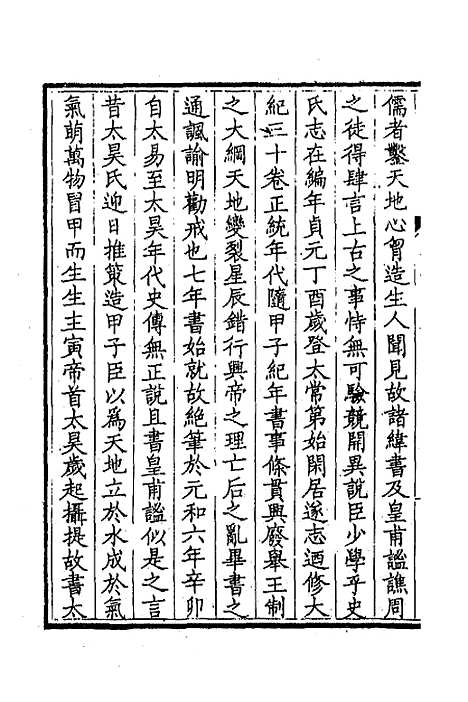 儒者鑿天地心胷造生人聞見故諸緯書及皇甫謐譙周
之徒得肆言上古之事恃無可驗競開異說臣少學乎史
氏志在編年貞元丁酉歲登太常第始閑居遂志迺修大
紀三十卷正統年代隨甲子紀年書事條貫興廢舉王制
之大綱天地變裂星辰錯行興帝之理亡后之亂畢書之
通諷諭明勸戒也七年書始就故絶筆於元和六年辛卯
自太易至太昊年代史傳無正說且書皇甫謐似是之言
昔太昊氏迎日推策造甲子臣以爲天地立於水成於氣
氣萌萬物冒甲而生生主寅帝首太昊歲起攝提故書太